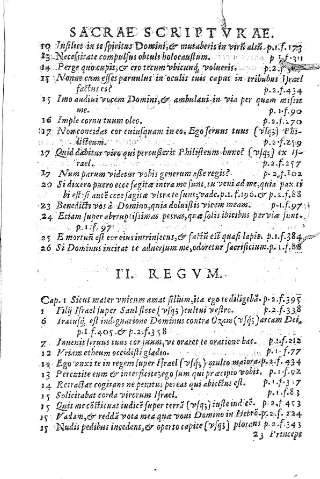 SACRAE SCRIPTVRAE.
10 Insiliet in te spiritus Domini, & mutaberis in virū aliū. p.1.f.173
13 Necessitate compulsus obtuli holocaustum. p.1.f.311
14 Perge quo cupis, & ero tecum vbicunq; volueris. p.2.f.36
15 Nonne cum esses paruulus in oculis tuis caput in tribubus Israel
factus es? p.2.f.434
15 Imo audiui vocem Domini, & ambulaui in via per quam misit
me. p.1.f.90
16 Imple cornu tuum oleo. p.2.f.270
17 Non concidat cor cuiusquam in eo, Ego seruus tuus (vsq;) Phi-
listæum. p.2.f.259
17 Quid dabitur viro qui percusserit Philistæum hunc? (vsq;) ex Is-
rael. p.2.f.257
17 Num parum videtur vobis generum esse regis? p.2.f.102
20 Si dixero puero ecce sagitæ intra me sunt, tu veni ad me, quia pax ti
bi est: si autē ecce sagitæ vltra te sunt, vade. p.1.f.196. & p.2.f.88
23 Benedicti vos à Domino, quia doluistis vicem meam. p.1.f.97
24 Etiam super abruptissimas petras, quæ solis ibicibus perviæ sunt.
p.1.f.97
25 Emortuū est cor eius intrinsecus, & factū est quasi lapis. p.1.f.384
26 Si Dominus incitat te aduersum me, odoretur sacrificium. p.1.f.86
II. REGVM.
Cap. 1 Sicut mater vnicum amat filium, ita ego te diligebā. p.2.f.395
1 Filij Israel super Saul flete (vsq;) cultui vestro. p.2.f.338
6 Iratusq; est indignatione Dominus contra Ozam (vsq;) arcam Dei.
p.1.f.405. & p.2.f.358
7 Inuenit seruus tuus cor suum, vt oraret te oratione hac. p.2.f.212
12 Vriam ethæum occidisti gladio. p.1.f.77
12 Ego vnxi te in regem super Israel (vsq;) multo maiora. p.2.f.434
13 Percutite eum & interficite: ego sum qui præcipio vobis. p.1.f.92
14 Retractat cogitans ne penitus pereat qui abiectus est. p.1.f.317
15 Solicitabat corda virorum Israel. p.1.f.83
15 Quis me cōstituat iudicē super terrā (vsq;) iuste iudicē. p.2.f.453
15 Vadam, & reddā vota mea quæ voui Domino in Hebrō. p.2.f.224
15 Nudis pedibus incedens, & operto capite (vsq;) plorans p.2.f.343
23 Princeps